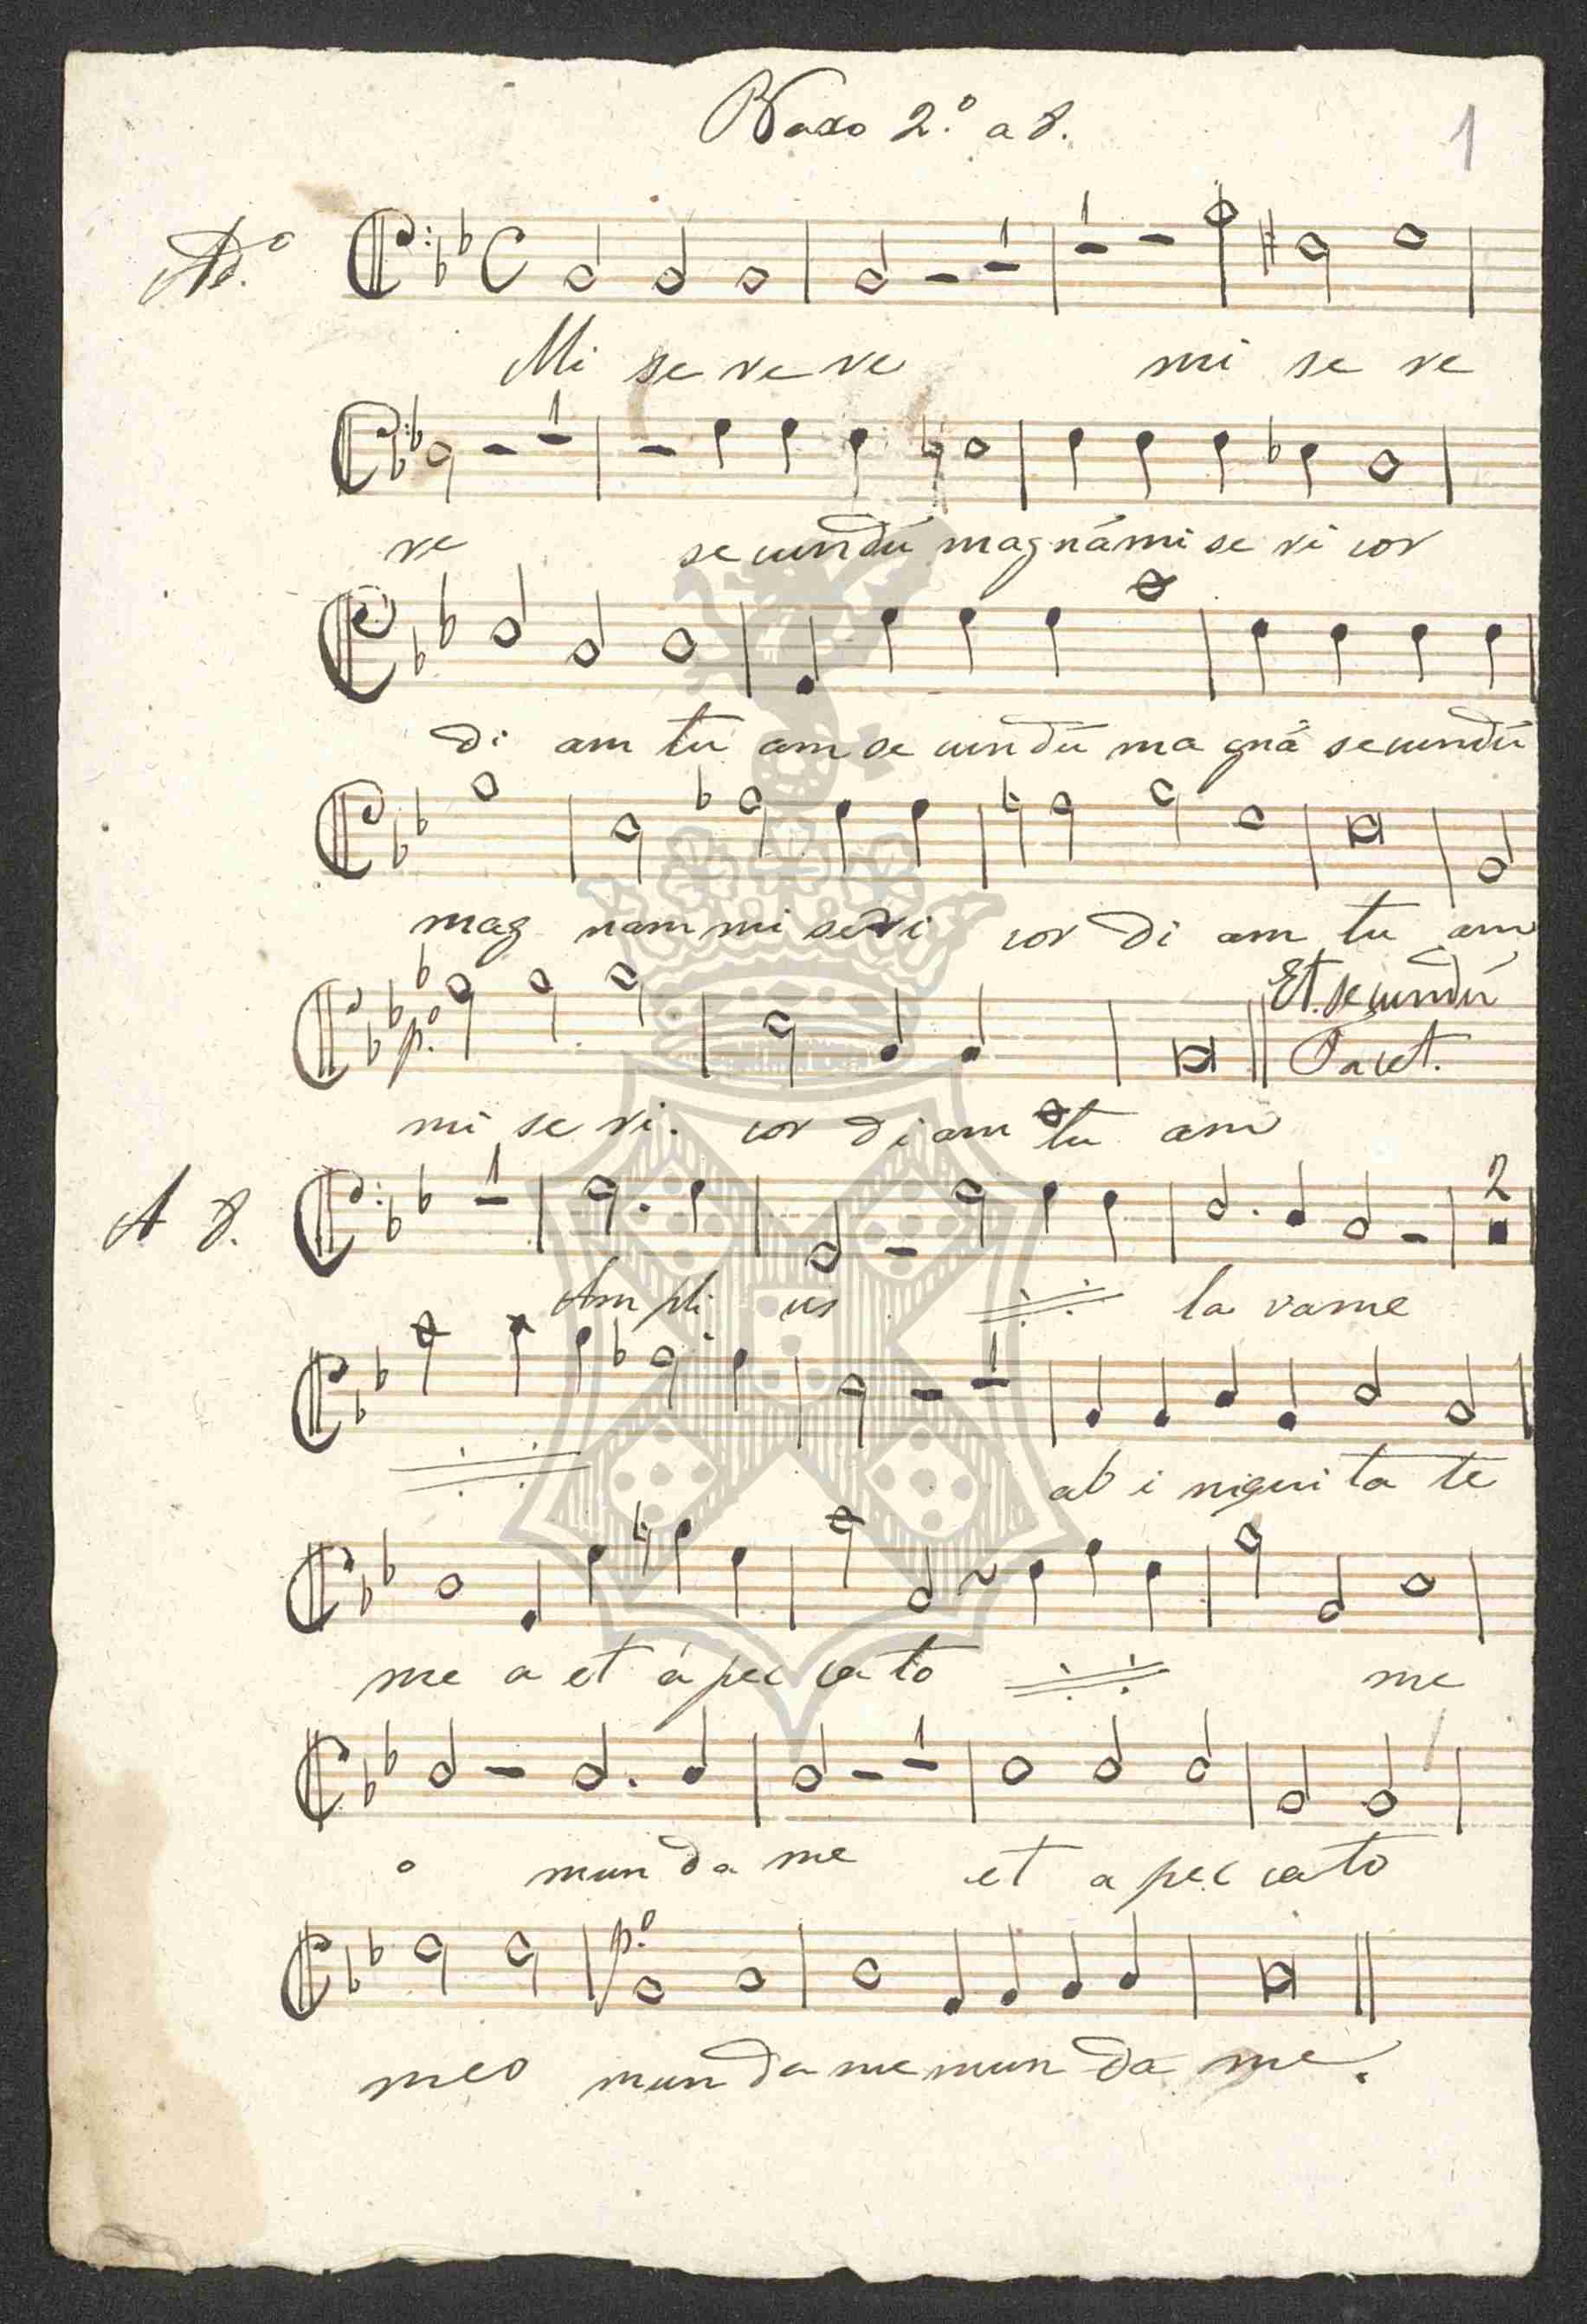 Baxo 2.º a 8.
1
Ad.º
Mi se re re mi se re
re secundú magnámi se ri cor
di am tu am se cun dú ma gná secundú
mag nam mi seri cor di am tu am
p.º Et secundú
Tacet.
mi se ri. cor di am tu am
A 8.
2
Am pli us la vame
ab i niqui ta te
me a et á pec ca to me
o mun da me et a pec cato
p.º
meo mun da me mun da me.